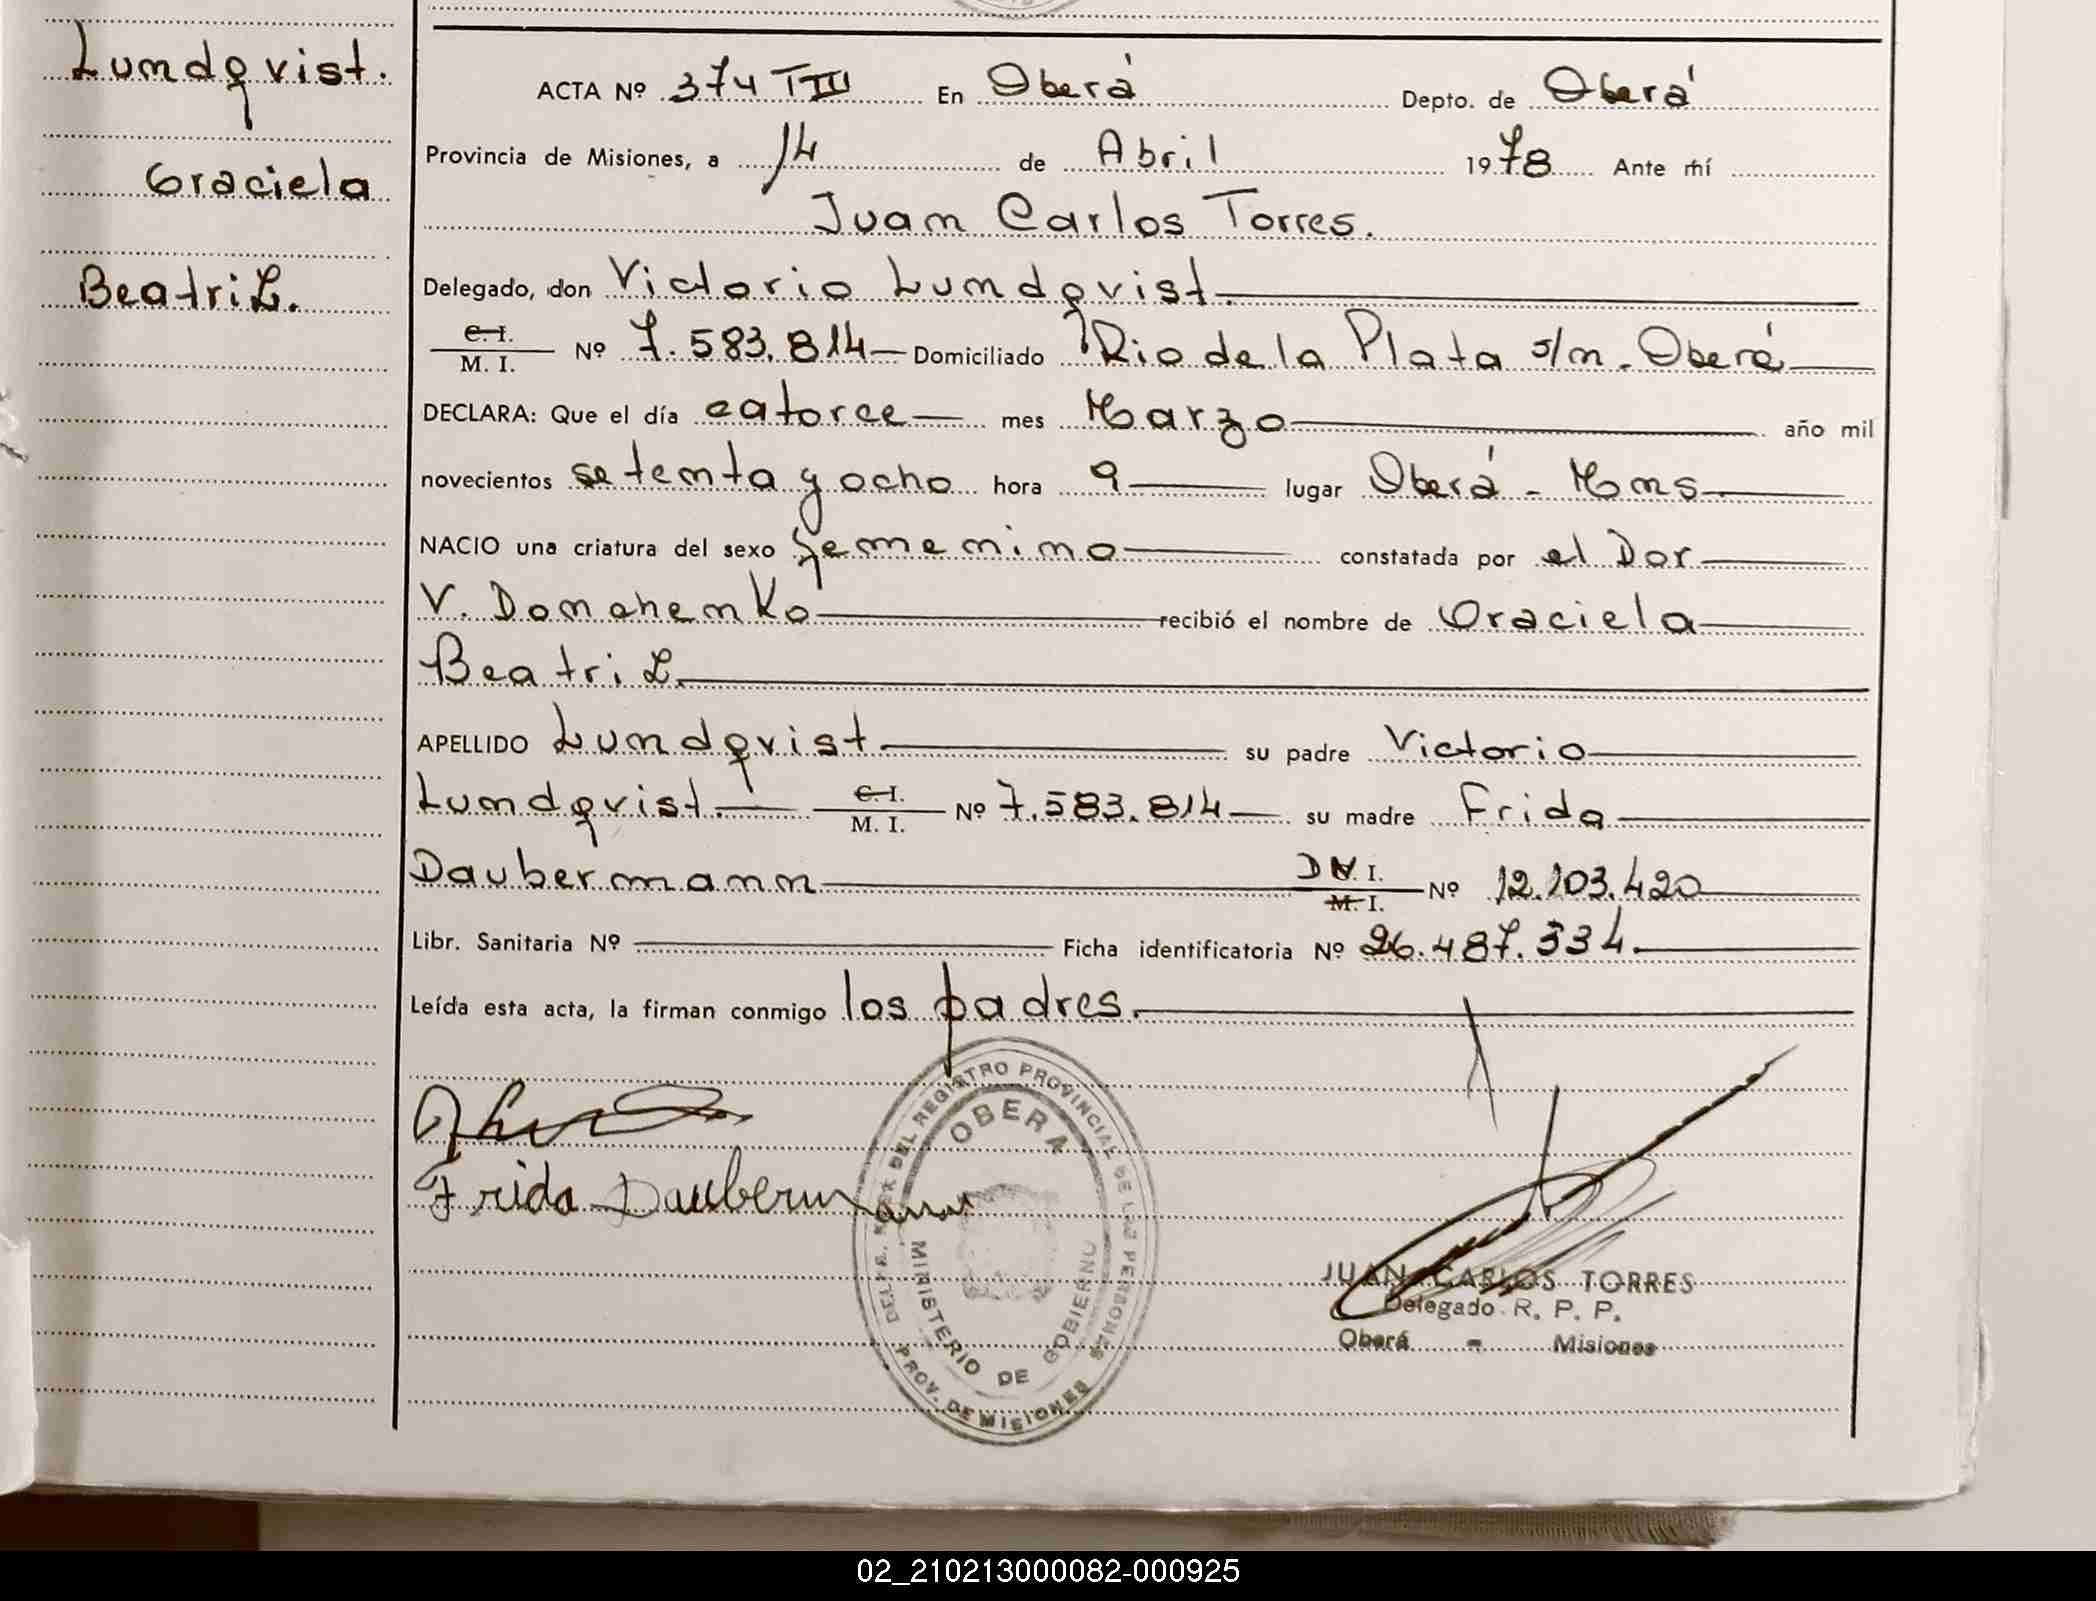 Lundqvist.
Graciela
Beatriz.
ACTA Nº 374 TIII En Oberá Depto. de Oberá
Provincia de Misiones, a 14 de Abril 1978 Ante mí
Juan Carlos Torres.
Delegado, don Victorio Lundqvist.
C. I.
M. I. Nº 7.583.814 Domiciliado Rio de la Plata s/n. Oberá
DECLARA: Que el día catorce mes Marzo año mil
novecientos setenta y ocho hora 9 lugar Oberá - Mns
NACIO una criatura del sexo femenino constatada por el Dor
V. Donchenko recibió el nombre de Graciela
Beatriz.
APELLIDO Lundqvist su padre Victorio
Lundqvist. C. I. M. I. Nº 7.583.814 su madre Frida
Daubermann D.N.I. M. I. Nº 12.103.420
Libr. Sanitaria Nº Ficha identificatoria Nº 26.487.334.
Leída esta acta, la firman conmigo los padres.
Frida Daubermann
DEL REGISTRO PROVINCIAL DE LAS PERSONAS
OBERA
MINISTERIO DE GOBIERNO
PROV. DE MISIONES
JUAN CARLOS TORRES
Delegado R. P. P.
Oberá - Misiones
02_210213000082-000925